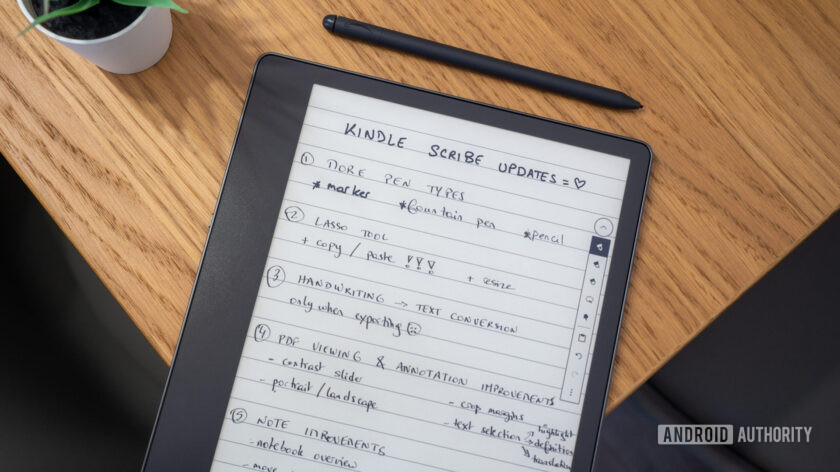 KINDLE SCRIBE UPDATES = ♡
① MORE PEN TYPES
* marker *fountain pen *pencil
② LASSO TOOL
+ copy / paste !!! + resize
③ HANDWRITING → TEXT CONVERSION
only when exporting ☹
④ PDF VIEWING & ANNOTATION IMPROVEMENTS
- contrast slide
- portrait / landscape
- crop margins
- text selection → highlight
→ definition
→ translation
⑤ NOTE IMPROVEMENTS
- notebook overview
- move
ANDROID AUTHORITY